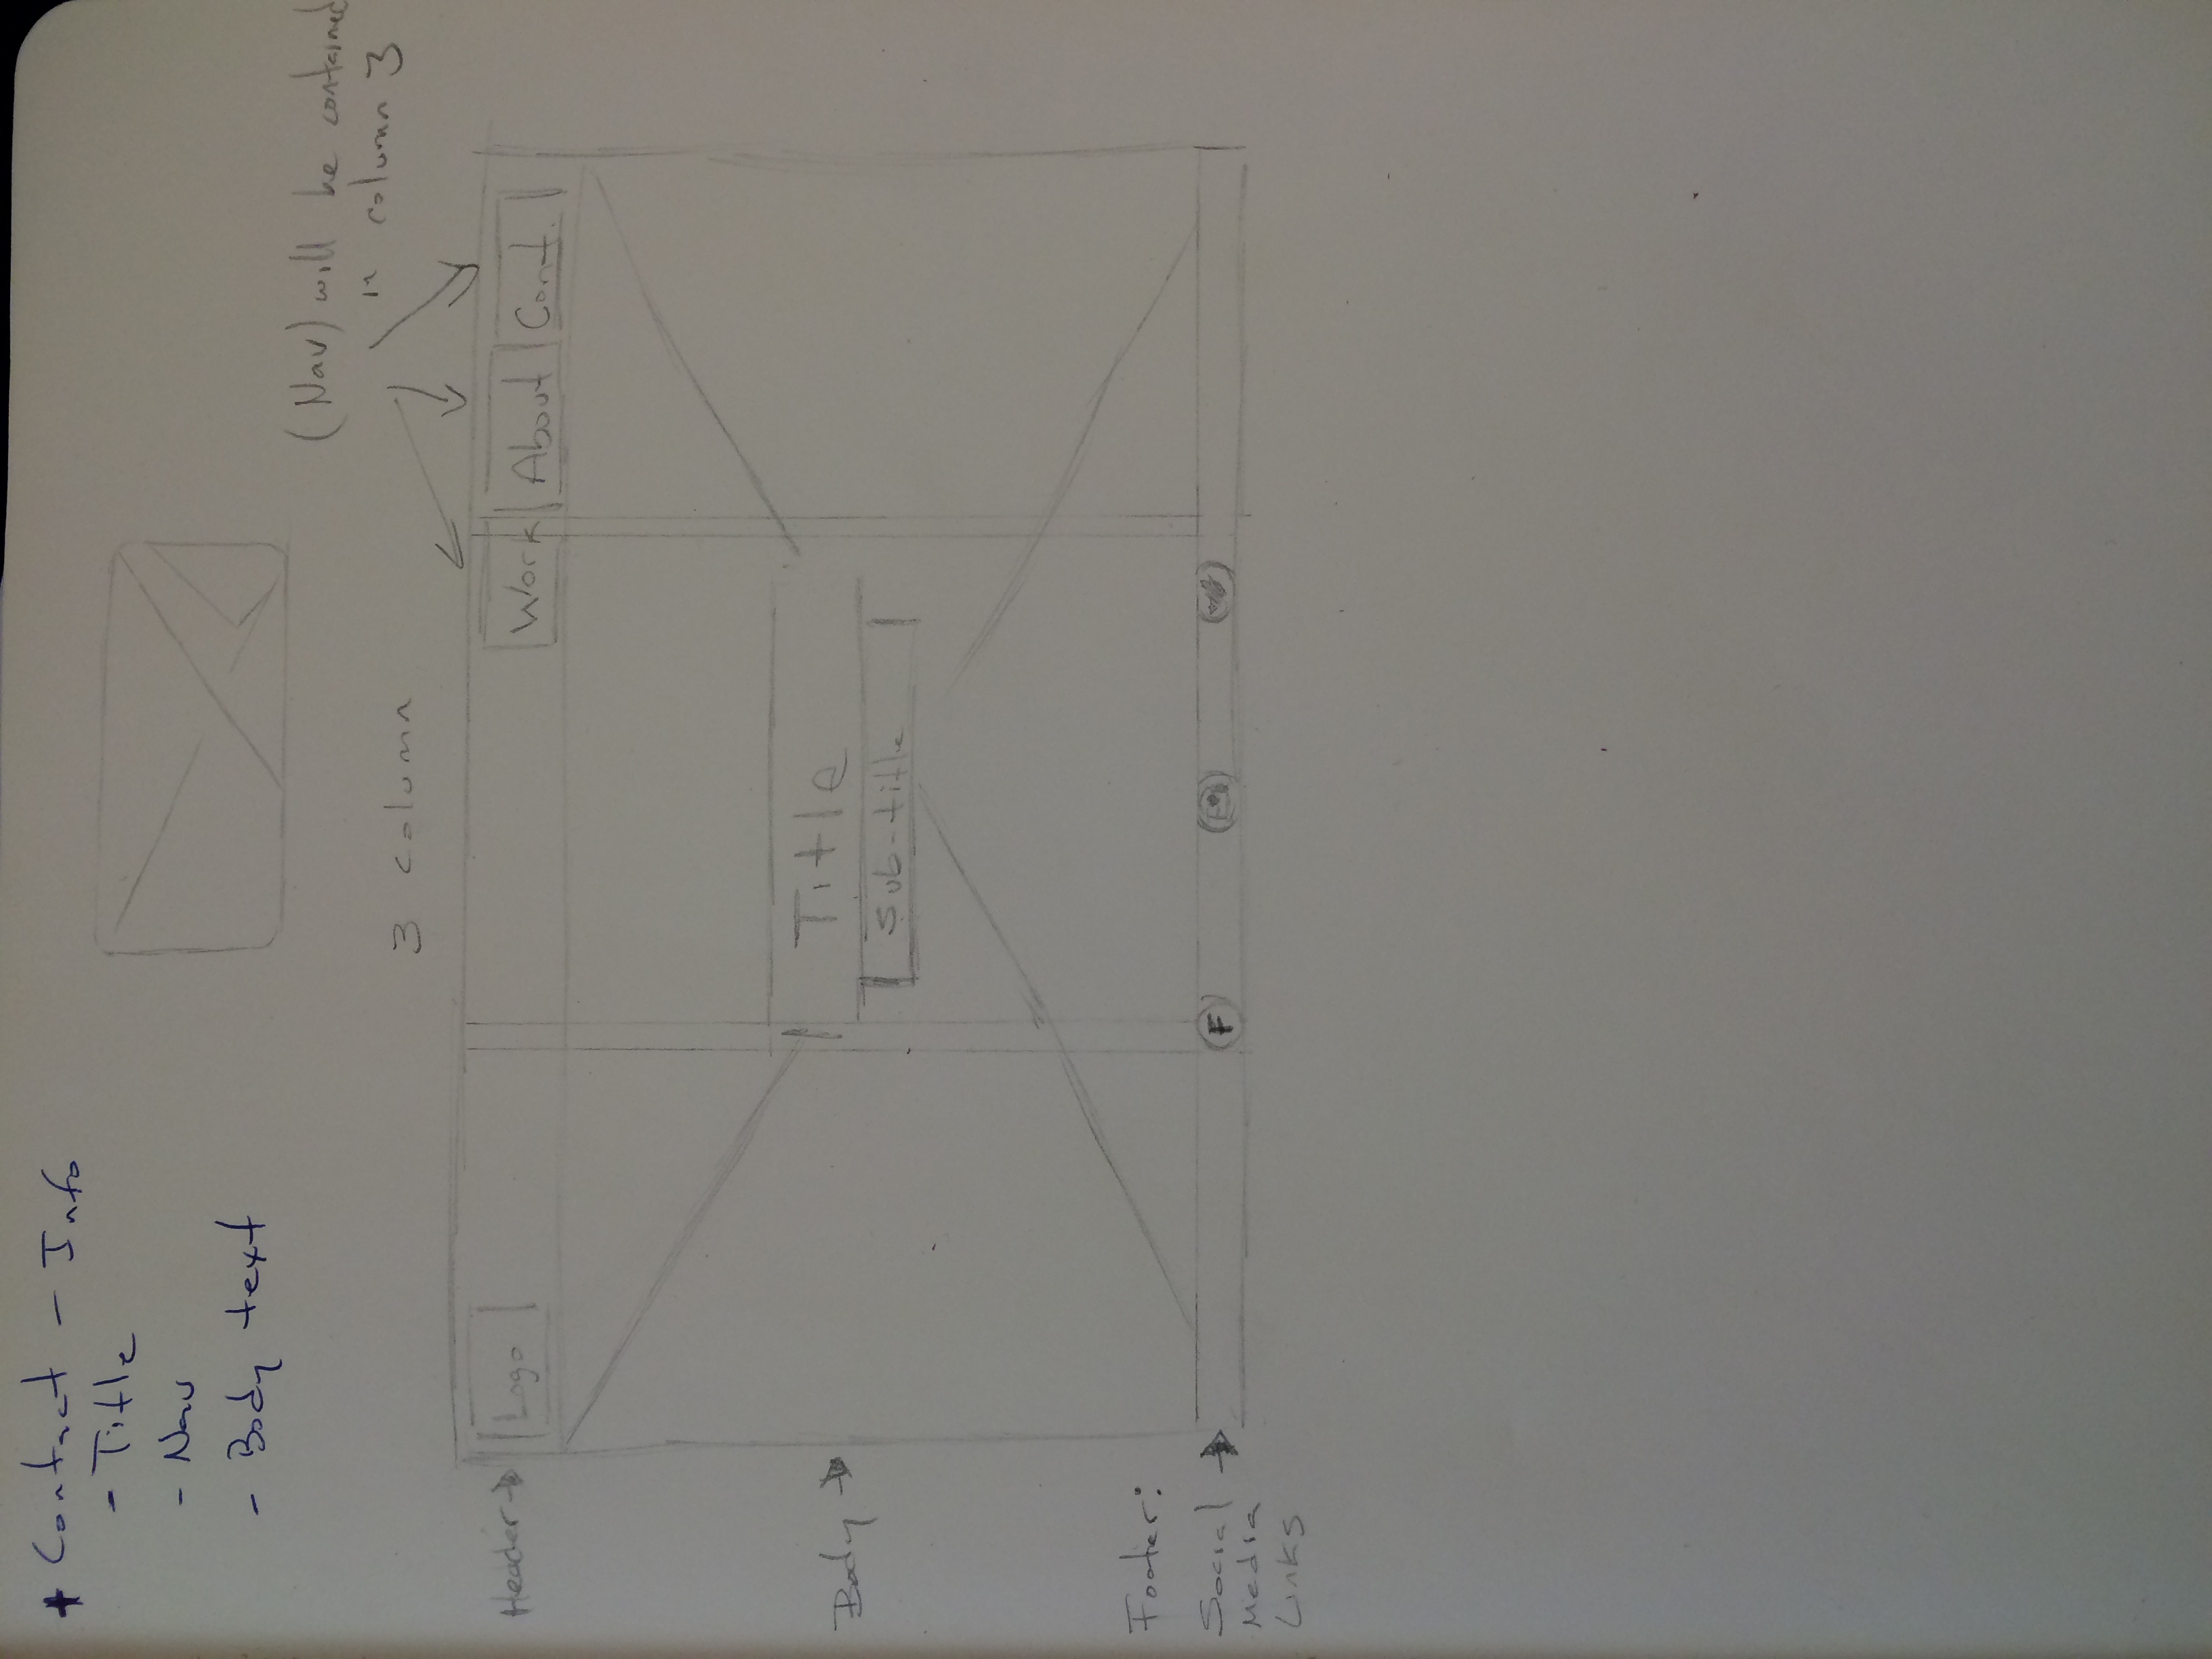 + Contact - Info
- Title
- Nav
- Body text
(Nav) will be contained
in column 3
3 column
Header
Logo
Work
About
Cont.
Title
Body
Sub-title
Footer:
Social
Media
Links
F